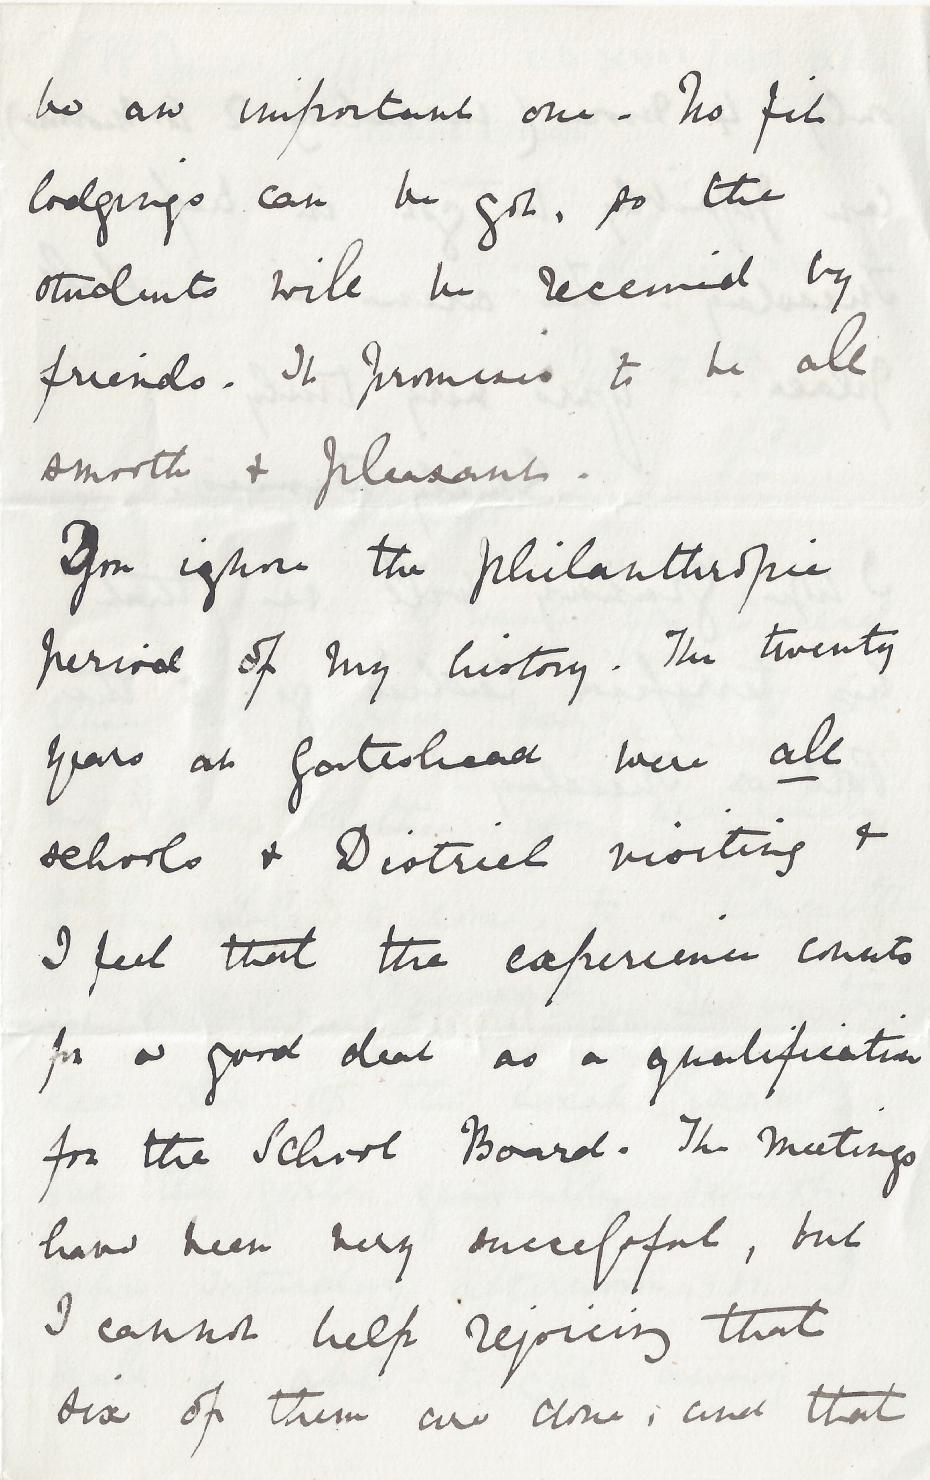 be an important one. No fit
lodgings can be got, so the
students will be received by
friends. It promises to be all
smooth & pleasant.
You ignore the philanthropic
period of my history. The twenty
years at Gateshead were all
schools & District visiting &
I feel that the experience counts
for a good deal as a qualification
for the School Board. The meetings
have been very successful, but
I cannot help rejoicing that
six of them are done, and that